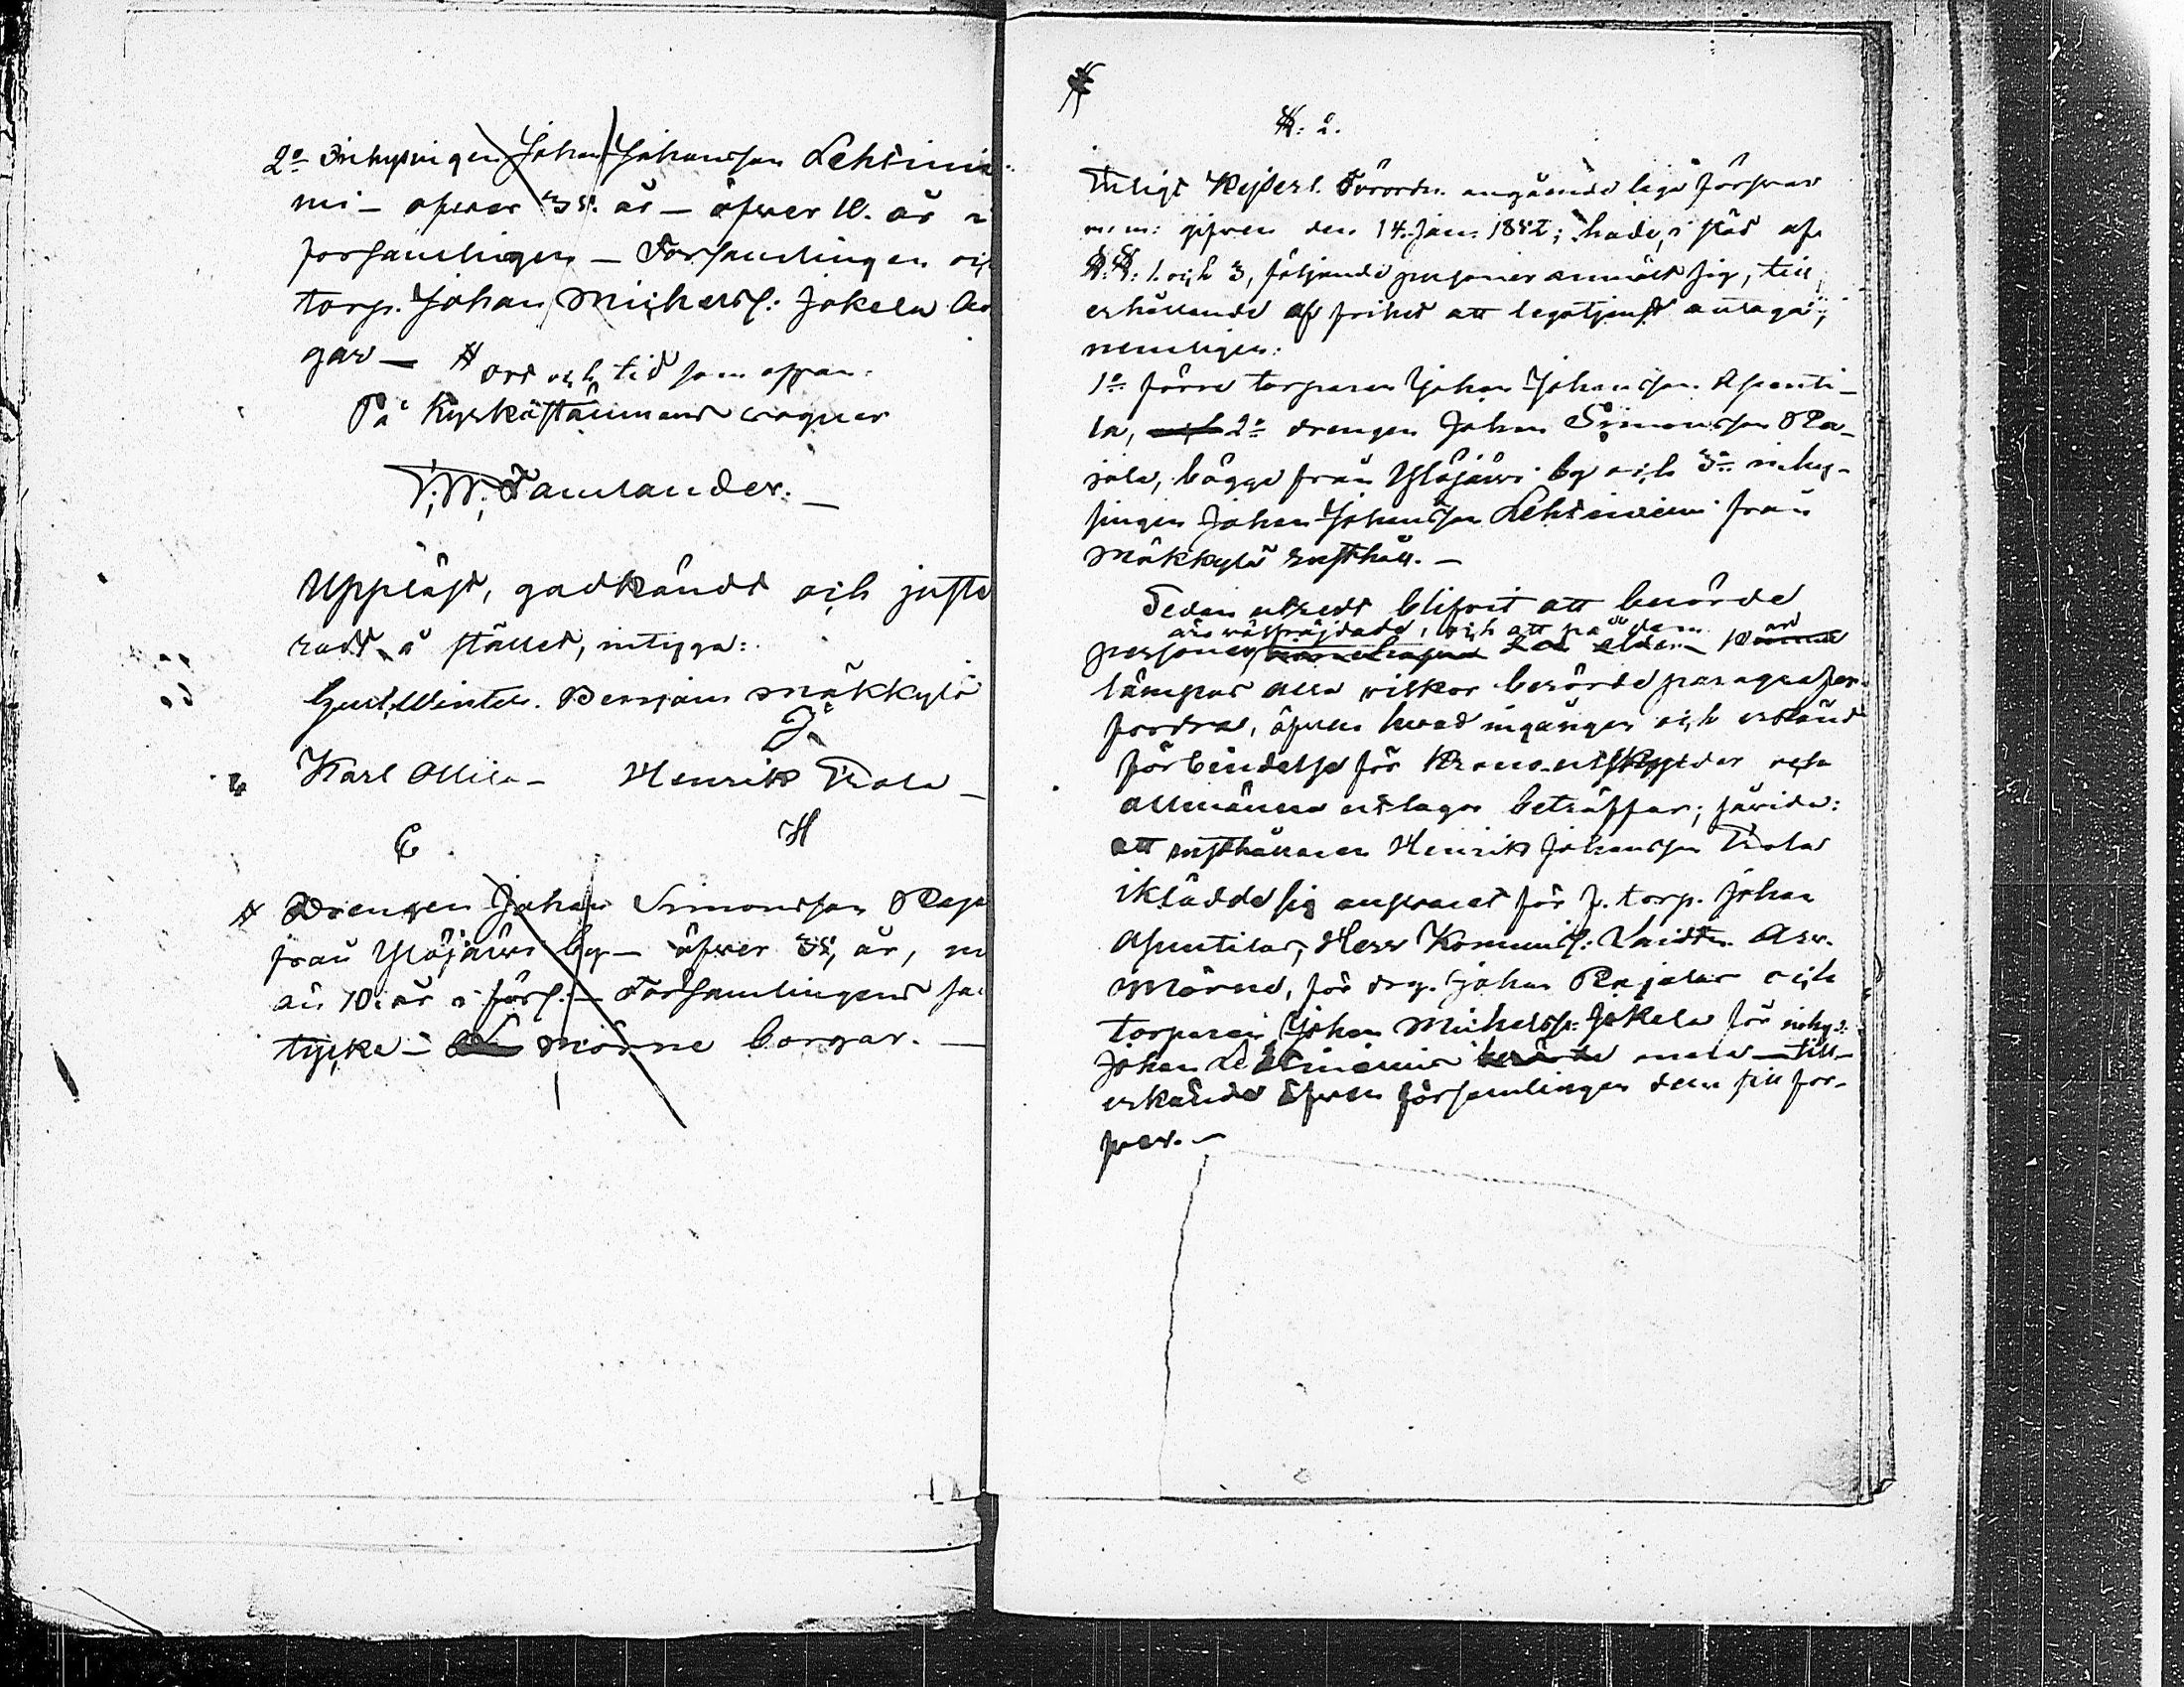 2o Inhysingen Johan Johansson Lehtinie
mi - öfwer 35. år - öfwer 10. år i
församlingen - Församlingen och
torp. Johan Michelss: Jokela bor
gar - # Ort och tid som ofvan.
På Kyrkostämmans wägnar
F. W. Tamlander. -
Uppläst, godkändt och juste
radt å stället, intyga:
Gust. Winter. Benjam Mäkkylä
Karl Ollila - Henrik Trola -
H
# Drengen Johan Simonsson Raja
från Ylöjärwi by - öfwer 35, år, m
än 10. år i förs. - Församlingens sam
tycke - Mörne borgar. -
#
§. 2.
Enligt Kejserl. Förordn. angående lega försvar
m.m: gifven den 14. Jan. 1852; hade, i stöd af
§.§. 1. och 3, följande personer anmält sig, till
erhållande af frihet att legotjenst antaga;
nemligen:
1o förre torparen Johan Johansson Apunti-
la, och 2o drengen Johan Simonsson Ra-
jala, bägge från Ylöjärwi by och 3o inhy-
singen Johan Johansson Lehtiniemi från
Mäkkylä rusthåll. -
Sedan utredt blifvit att berörde
äro wälfräjdade, och att på dem
personer
lämpas alla vilkor berörde paragrafer
fordra, äfven hvad ingången och erkänd
förbindelse för Krono-utskylder och
allmänna utlagor beträffar; såvida:
att rusthållaren Henrik Johansson Trola
iklädde sig answaret för f. torp. Johan
Apuntila, Herr Kommiss: Landtm. Asw.
Mörne, för drg. Johan Rajala och
torparen Johan Michelss: Jokela för inhys.
Johan Lehtiniemi till-
erkände äfven församlingen dem sitt för-
swar. -